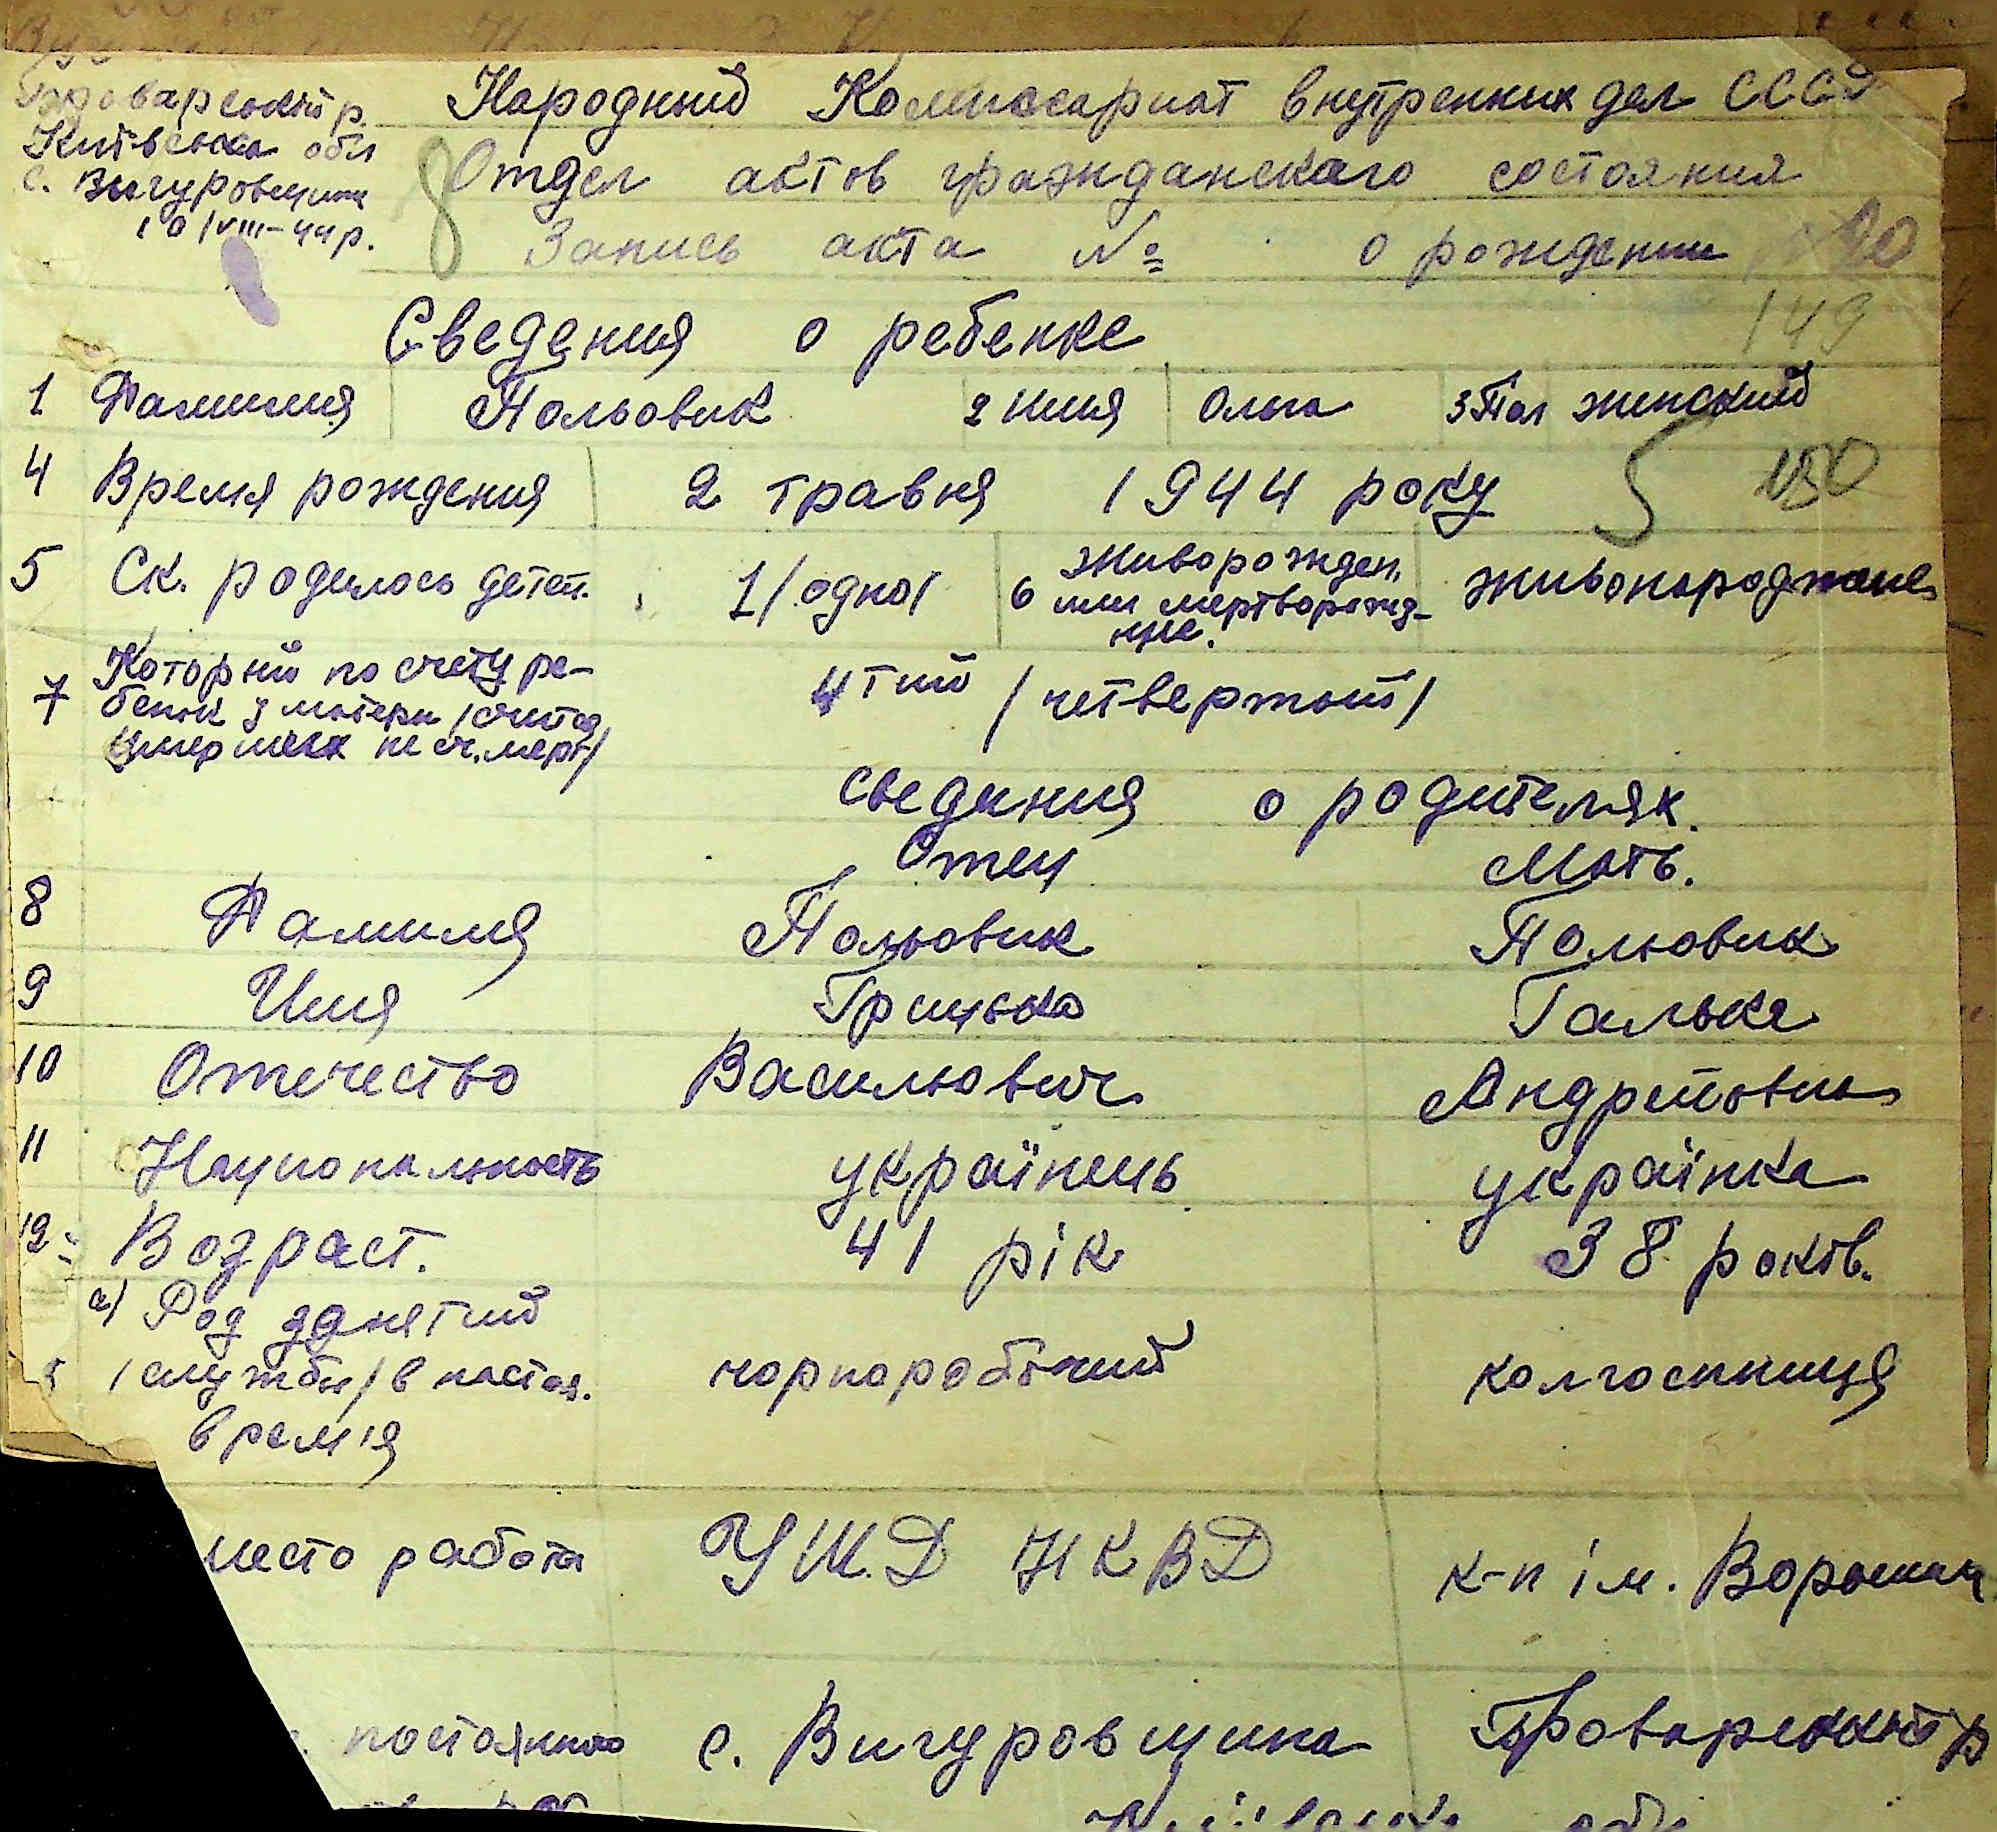 Броварський р.
Київська обл
с. Вигуровщина
10/VIII-44р.
Народный Комиссариат внутренних дел СССР
Отдел актов гражданского состояния
Запись акта № о рождении 90
149
Сведения о ребенке
1 Фамилия Польовик 2 Имя Ольга 3 Пол женский
4 Время рождения 2 травня 1944 року 150
5 Ск. родилось детей. 1/одно/ 6 живорожден. или мертворожд-ние. живонароджене
7 Которий по счету ре-
бенок у матери /считая
умерших не сч. мерт/
4тий /четвертый/
Сведения о родителях.
Отец Мать.
8 Фамилия Польовик Польовик
9 Имя Грицько Галька
10 Отчество Васильович Андреївна
11 Национальность українець українка
12 Возраст. 41 рік 38 років.
а/ Род занятий
/службы/ в настоя.
время
чорноробочий колгоспниця
место работи УЖ.Д НКВД к-п ім. Ворошил
постоянного с. Вигуровщина Броварський р
Київська обл